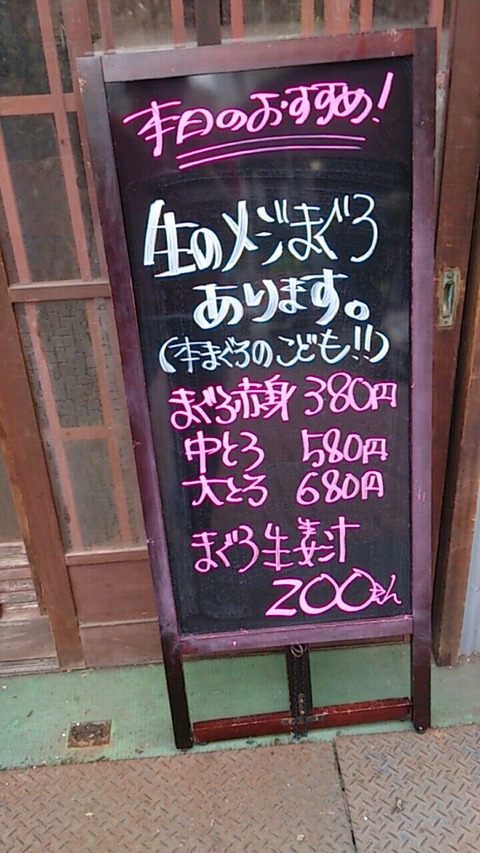 本日のおすすめ!
生のメジまぐろ
あります。
(本まぐろのこども!!)
まぐろ赤身 380円
中とろ 580円
大とろ 680円
まぐろ生姜汁
200えん